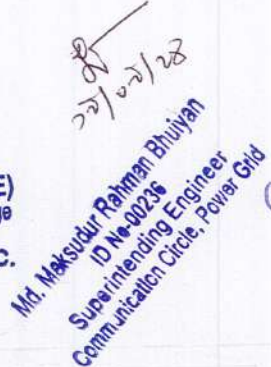 E)
C.
Md. Maksudur Rahman Bhuiyan
ID No-00236
Superintending Engineer
Communication Circle, Power Grid